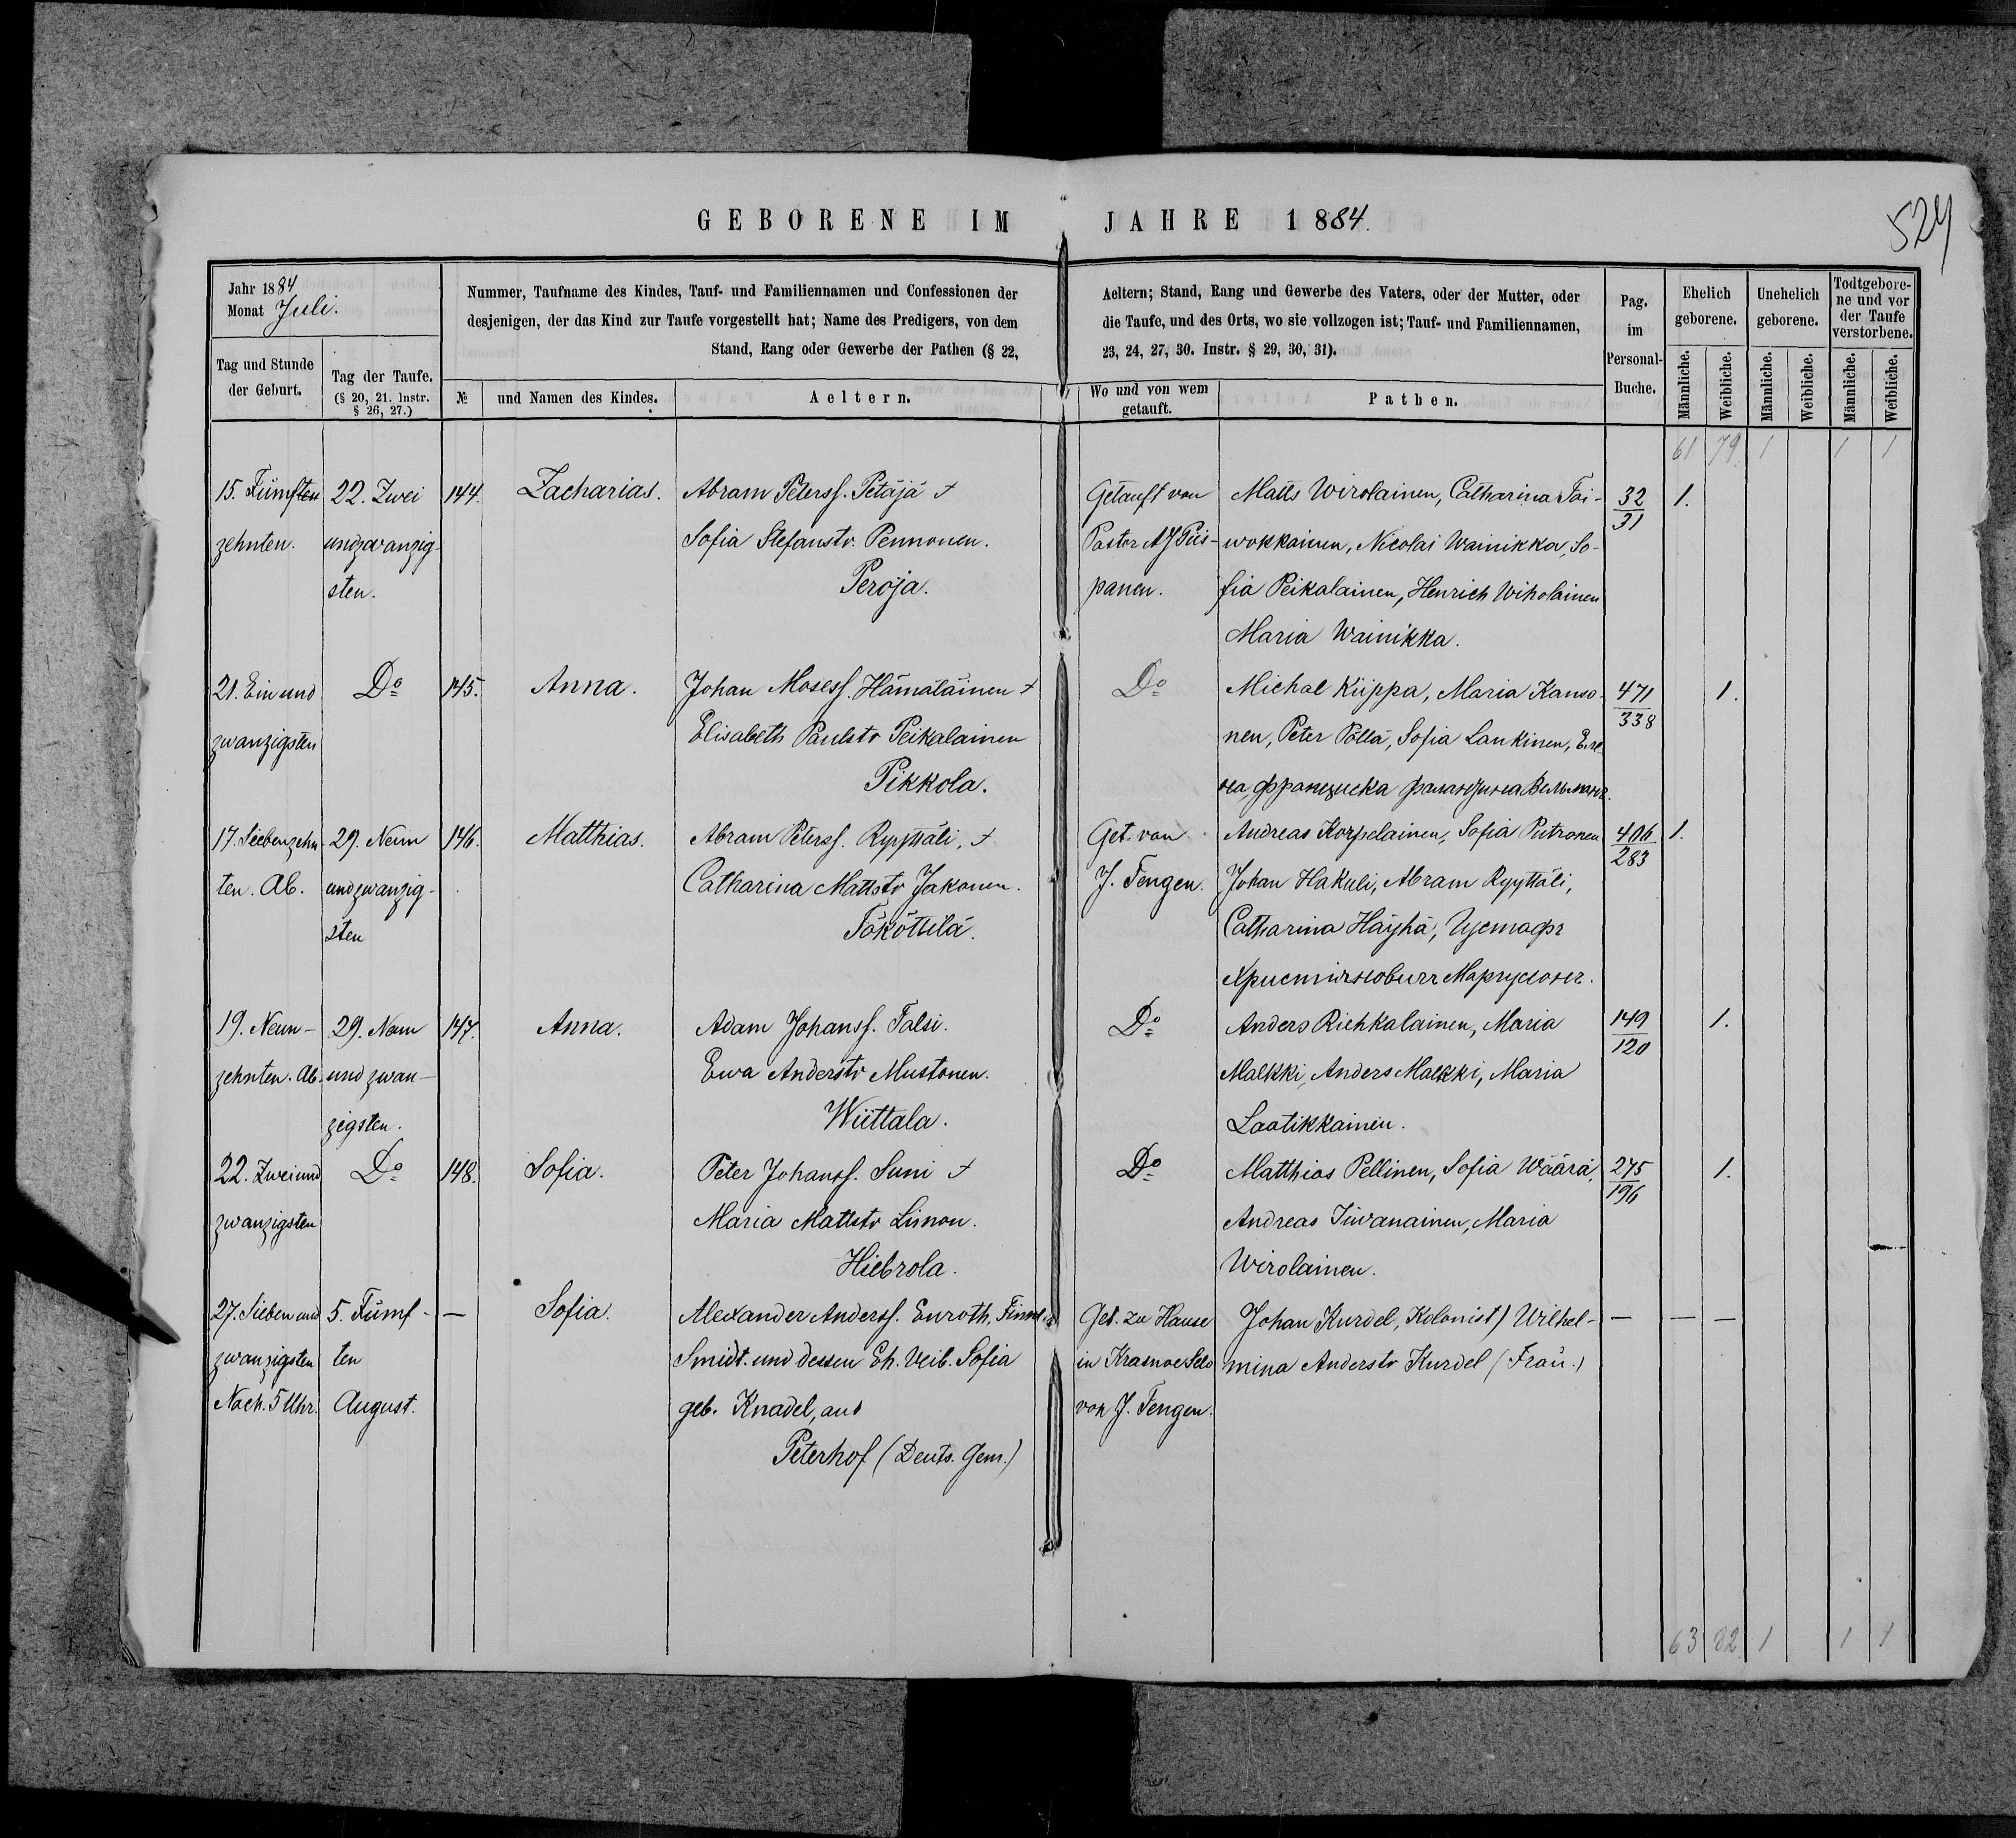 524
GEBORENE IM JAHRE 1884.
Jahr 1884
Monat Juli.
Tag und Stunde
der Geburt.
Tag der Taufe.
(§ 20, 21. Instr.
§ 26, 27.)
Nummer, Taufname des Kindes, Tauf- und Familiennamen und Confessionen der
desjenigen, der das Kind zur Taufe vorgestellt hat; Name des Predigers, von dem
Stand, Rang oder Gewerbe der Pathen (§ 22,
№
und Namen des Kindes.
Aeltern.
Aeltern; Stand, Rang und Gewerbe des Vaters, oder der Mutter, oder
die Taufe, und des Orts, wo sie vollzogen ist; Tauf- und Familiennamen,
23, 24, 27, 30. Instr. § 29, 30, 31).
Wo und von wem
getauft.
Pathen.
Pag.
im
Personal-
Buche.
Ehelich
geborene.
Unehelich
geborene.
Todtgebore-
ne und vor
der Taufe
verstorbene.
Männliche.
Weibliche.
Männliche.
Weibliche.
Männliche.
Weibliche.
61 79 1 1 1
15. Fümften
zehnten.
22. Zwei
undzwanzig-
sten.
144.
Zacharias.
Abram Peterss. Petäjä +
Sofia Stefanstr Pennonen.
Peroja.
Getauft von
Pastor
panen.
Matts Wirolainen, Catharina Toi-
wokkainen, Nicolai Wainikka, So-
fia Peikalainen, Henrich Wiholainen
Maria Wainikka.
32
31
1.
21. Ein und
zwanzigsten
Do
145.
Anna.
Johan Mosess. Hämäläinen +
Elisabeth Paulstr Peikalainen
Pikkola.
Do
Michal Kiippa, Maria Kanso-
nen, Peter Pöllä, Sofia Laukinen, Еле
на, Франциска
471
338
1.
17. Siebenzehn
ten. Ab.
29. Neun
undzwanzig-
sten
146.
Matthias.
Abram Peterss. Ryyttäli, +
Catharina Mattstr Jakonen.
Tököttilä.
Get. von
J. Tengen.
Andreas Korpelainen, Sofia Putronen
Johan Hakuli, Abram Ryyttäli,
Catharina Häyhä, Густафъ
406
283
1.
19. Neun-
zehnten. Ab.
29. Neun
und zwan-
zigsten.
147.
Anna.
Adam Johanss. Talsi.
Ewa Anderstr Mustonen.
Wiittala.
Do
Anders Riehkalainen, Maria
Malkki, Anders Malkki, Maria
Laatikkainen.
149
120
1.
22. Zwei und
zwanzigsten
Do
148.
Sofia.
Peter Johanss. Suni +
Maria Mattstr Limon.
Hiebrola.
Do
Matthias Pellinen, Sofia Wäärä,
Andreas Juwanainen, Maria
Wirolainen.
275
196
1.
27. Sieben und
zwanzigsten
Nach. 5 Uhr.
5. Fümf-
ten
August.
—
Sofia.
Alexander Anderss. Enroth, Finnl.
Smidt. und dessen Eh. Weib. Sofia
geb. Knadel, aus
Peterhof (Deuts. Gem.)
Get. zu Hause
in Krasnoe Selo
von J. Tengen.
Johan Kurdel, Kolonist) Wilhel-
mina Anderstr Kurdel (Frau.)
— — —
63 82 1 1 1